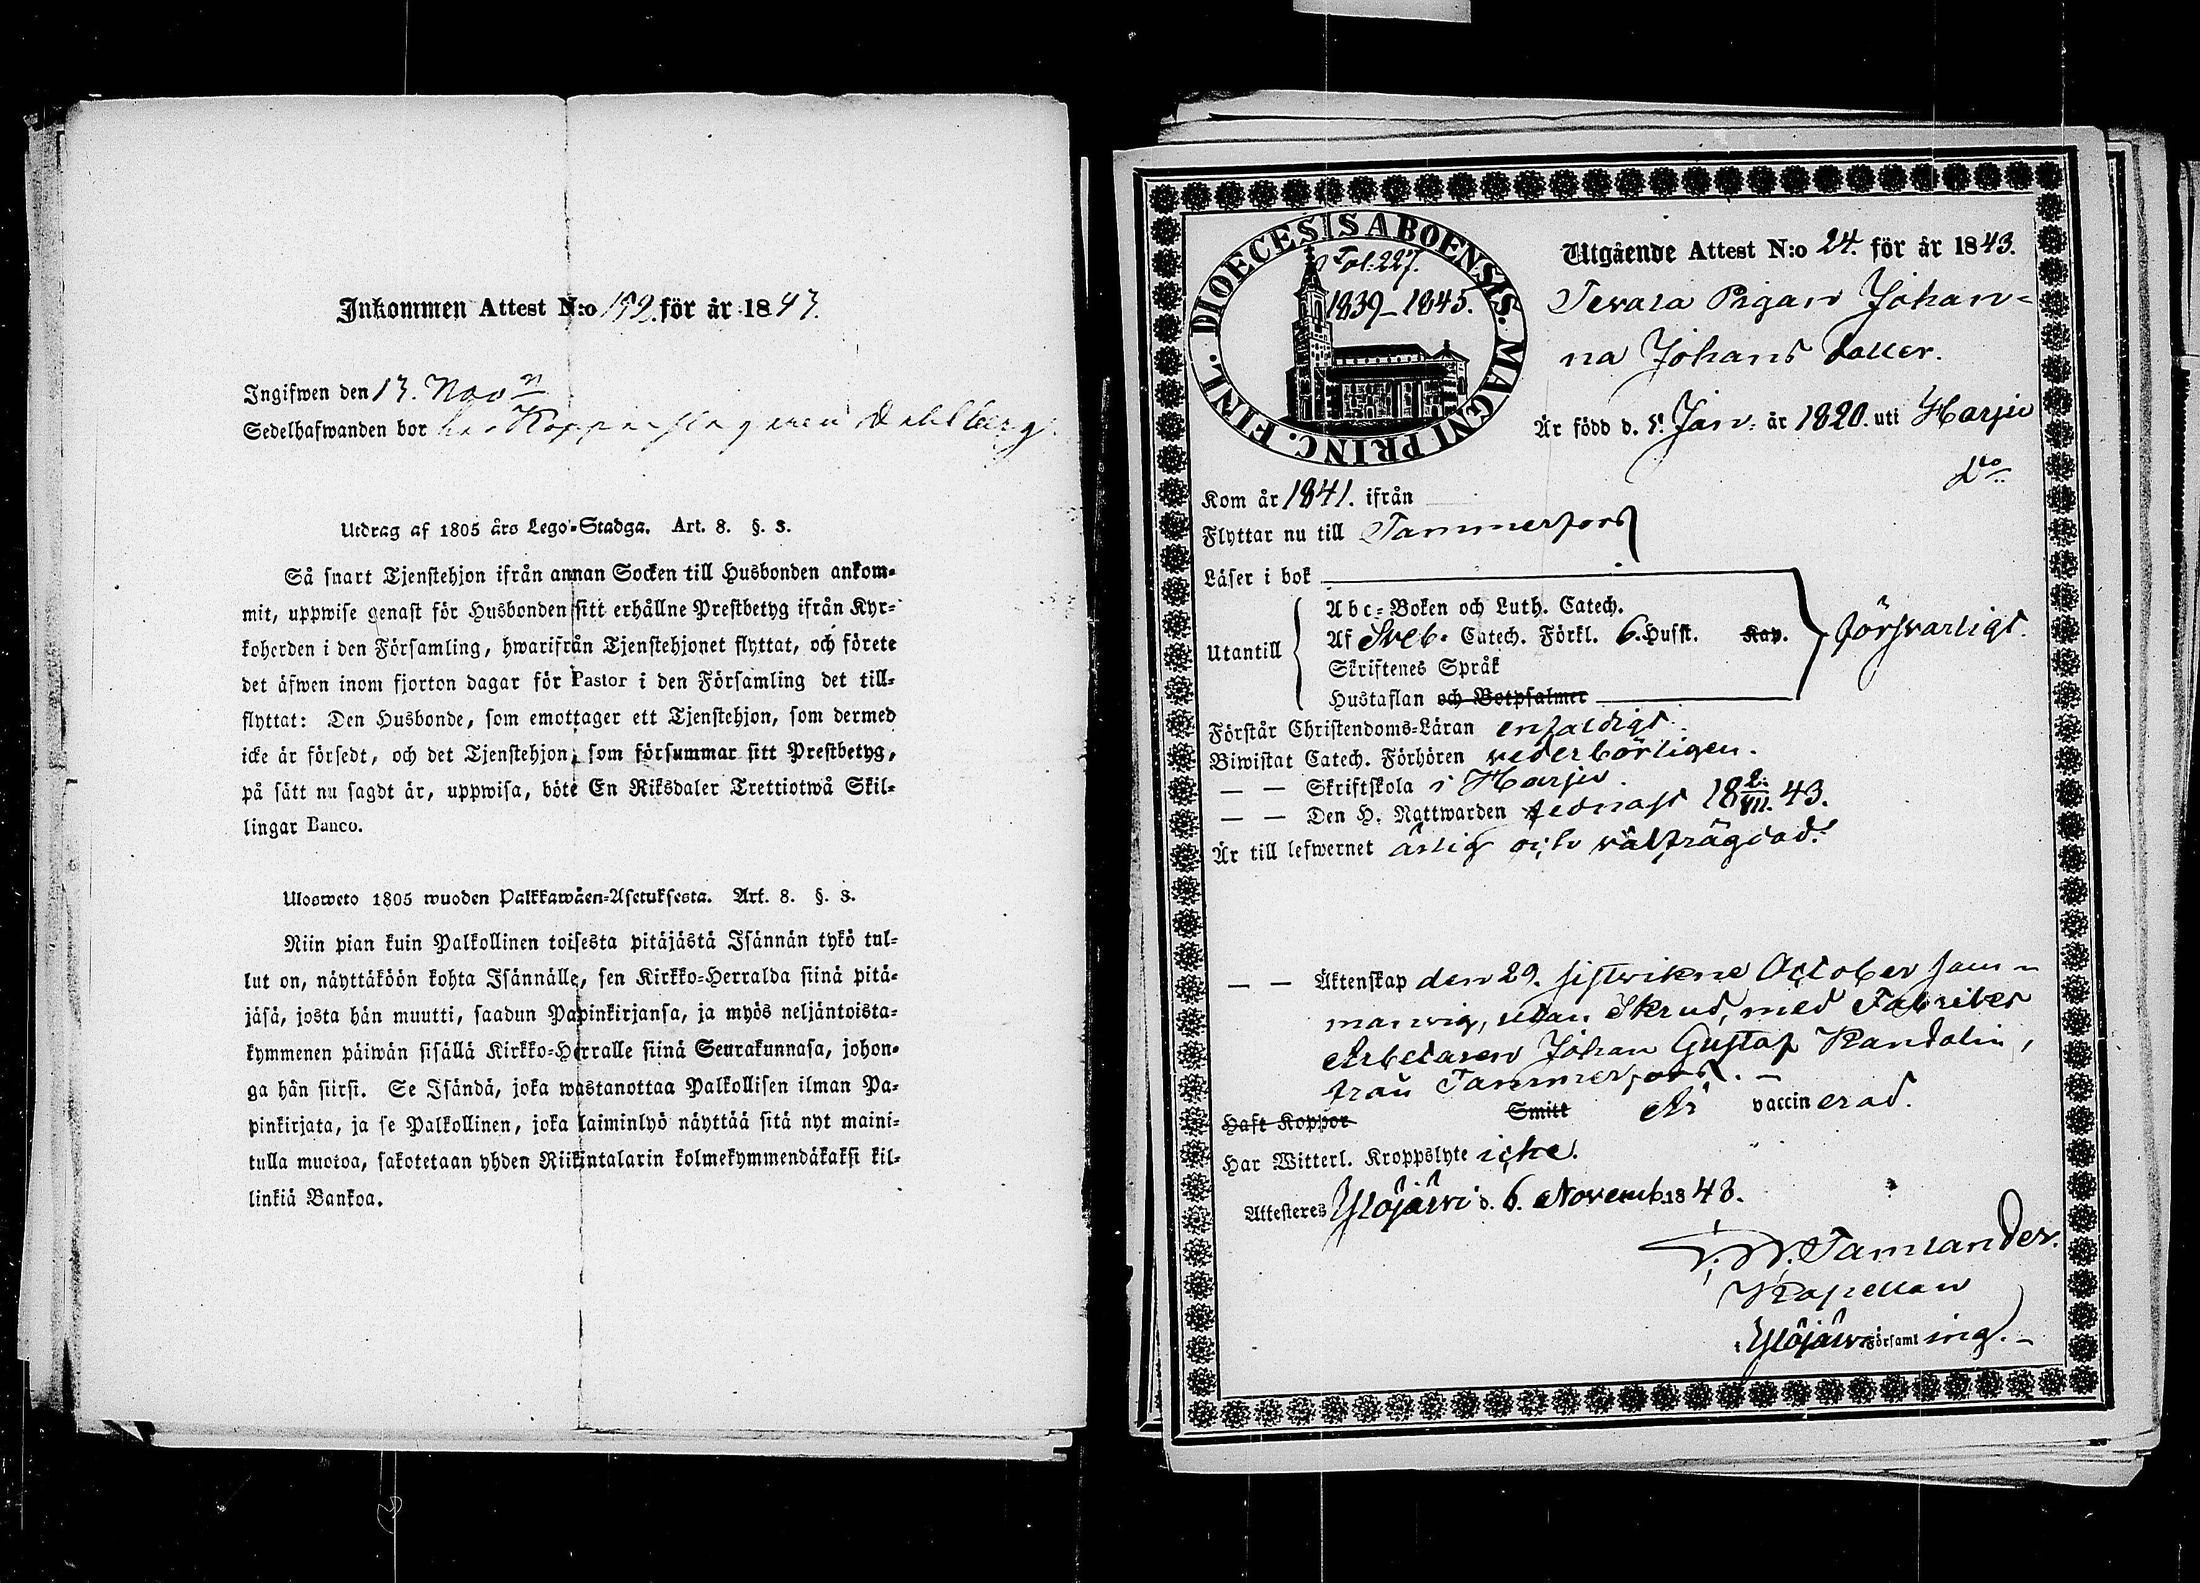 Inkommen Attest N:o 192. för år 1843.
Ingifwen den 13. Nov
Sedelhafwanden bor hos Kopparslagaren Dahlberg
Utdrag af 1805 års Lego-Stadga. Art. 8. §. 3.
Så snart Tjenstehjon ifrån annan Socken till Husbonden ankom-
mit, uppwise genast för Husbonden sitt erhållne Prestbetyg ifrån Kyr-
koherden i den Församling, hwarifrån Tjenstehjonet flyttat, och förete
det äfwen inom fjorton dagar för Pastor i den Församling det till-
flyttat: Den Husbonde, som emottager ett Tjenstehjon, som dermed
icke är försedt, och det Tjenstehjon, som försummar sitt Prestbetyg,
på sätt nu sagdt är, uppwisa, böte En Riksdaler Trettiotwå Skil-
lingar Banco.
Ulosweto 1805 wuoden Palkkawäen-Asetuksesta. Art. 8. §. 3.
Niin pian kuin Palkollinen toisesta pitäjästä Isännän tykö tul-
lut on, näyttäköön kohta Isännälle, sen Kirkko-Herralda siinä pitä-
jäsä, josta hän muutti, saadun Papinkirjansa, ja myös neljäntoista-
kymmenen päiwän sisällä Kirkko-Herralle siinä Seurakunnasa, johon-
ga hän siirsi. Se Isändä, joka wastanottaa Palkollisen ilman Pa-
pinkirjata, ja se Palkollinen, joka laiminlyö näyttää sitä nyt maini-
tulla muotoa, sakotetaan yhden Riikintalarin kolmekymmendäkaksi kil-
linkiä Bankoa.
DIOECESIS ABOENSIS. MAGNI PRINC. FINL.
Fol. 227.
1839-1845.
Utgående Attest N:o 24. för år 1843.
Pigan Johan-
na Johans dotter.
Är född d. 5. Jan. år 1820. uti Harju
Kom år 1841. ifrån Dto
Flyttar nu till Tammerfors
Läser i bok
Utantill
Abc-Boken och Luth. Catech.
Af Sveb. Catech. Förkl. 6. Husst. Kap. försvarligt.
Skriftenes Språk
Hustaflan och Botpsalmer
Förstår Christendoms-Läran enfaldigt.
Biwistat Catech. Förhören vederbörligen.
— — Skriftskola i Harju.
— — Den H. Nattwarden sednast 18 2/VII. 43.
Är till lefwernet ärlig och välfrägdad.
— — Äktenskap den 29. sistvikne October sam-
manvigd, utan Skrud, med Fabriks
Arbetaren Johan Gustaf Randolin,
från Tammerfors. —
Haft Koppor Smitt Är vaccinerad.
Har Witterl. Kroppslyte icke.
Attesteres Ylöjärvi d. 6. Novemb. 1843.
Tamlander.
Kapellan
i Ylöjärvi Församling. —